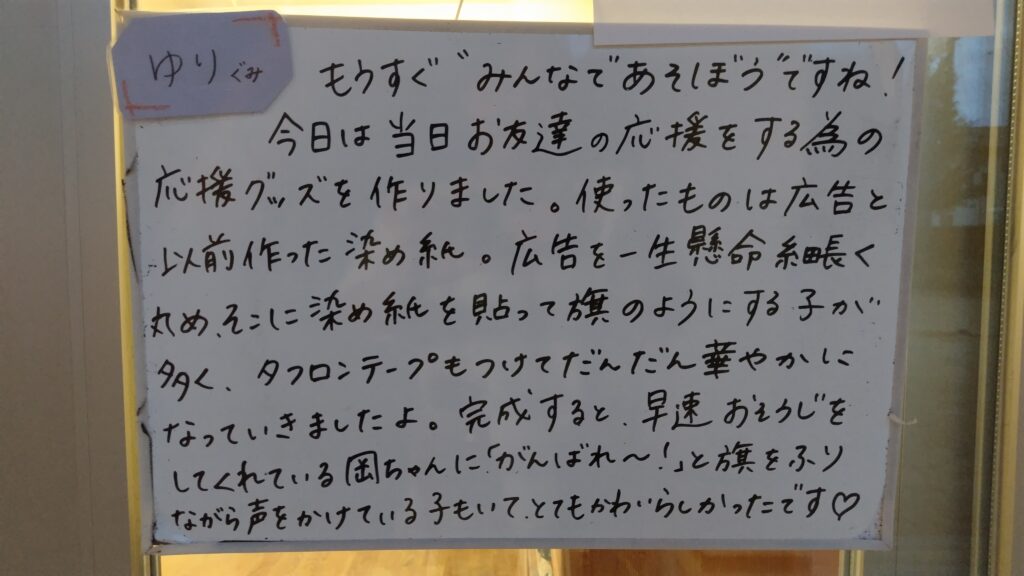 ゆりぐみ
もうすぐ"みんなであそぼう"ですね!
今日は当日お友達の応援をする為の
応援グッズを作りました。使ったものは広告と
以前作った染め紙。広告を一生懸命細長く
丸め、そこに染め紙を貼って旗のようにする子が
多く、タフロンテープもつけてだんだん華やかに
なっていきましたよ。完成すると、早速おそうじを
してくれている岡ちゃんに「がんばれ〜!」と旗をふり
ながら声をかけている子もいて、とてもかわいらしかったです♡